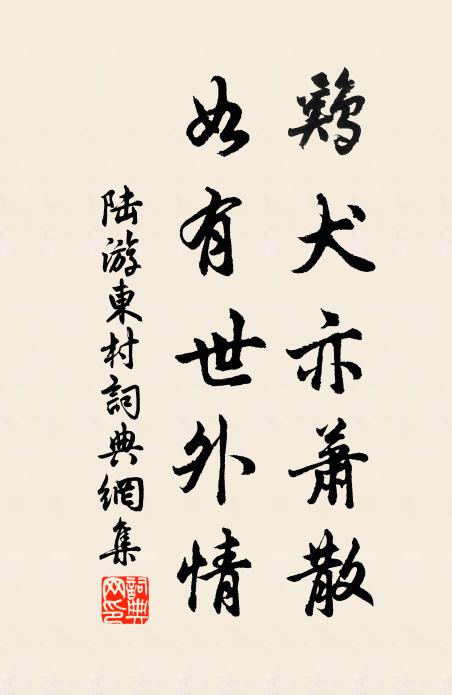 鷄犬亦蕭散
如有世外情
陸游東村詞典網集
詞典網印